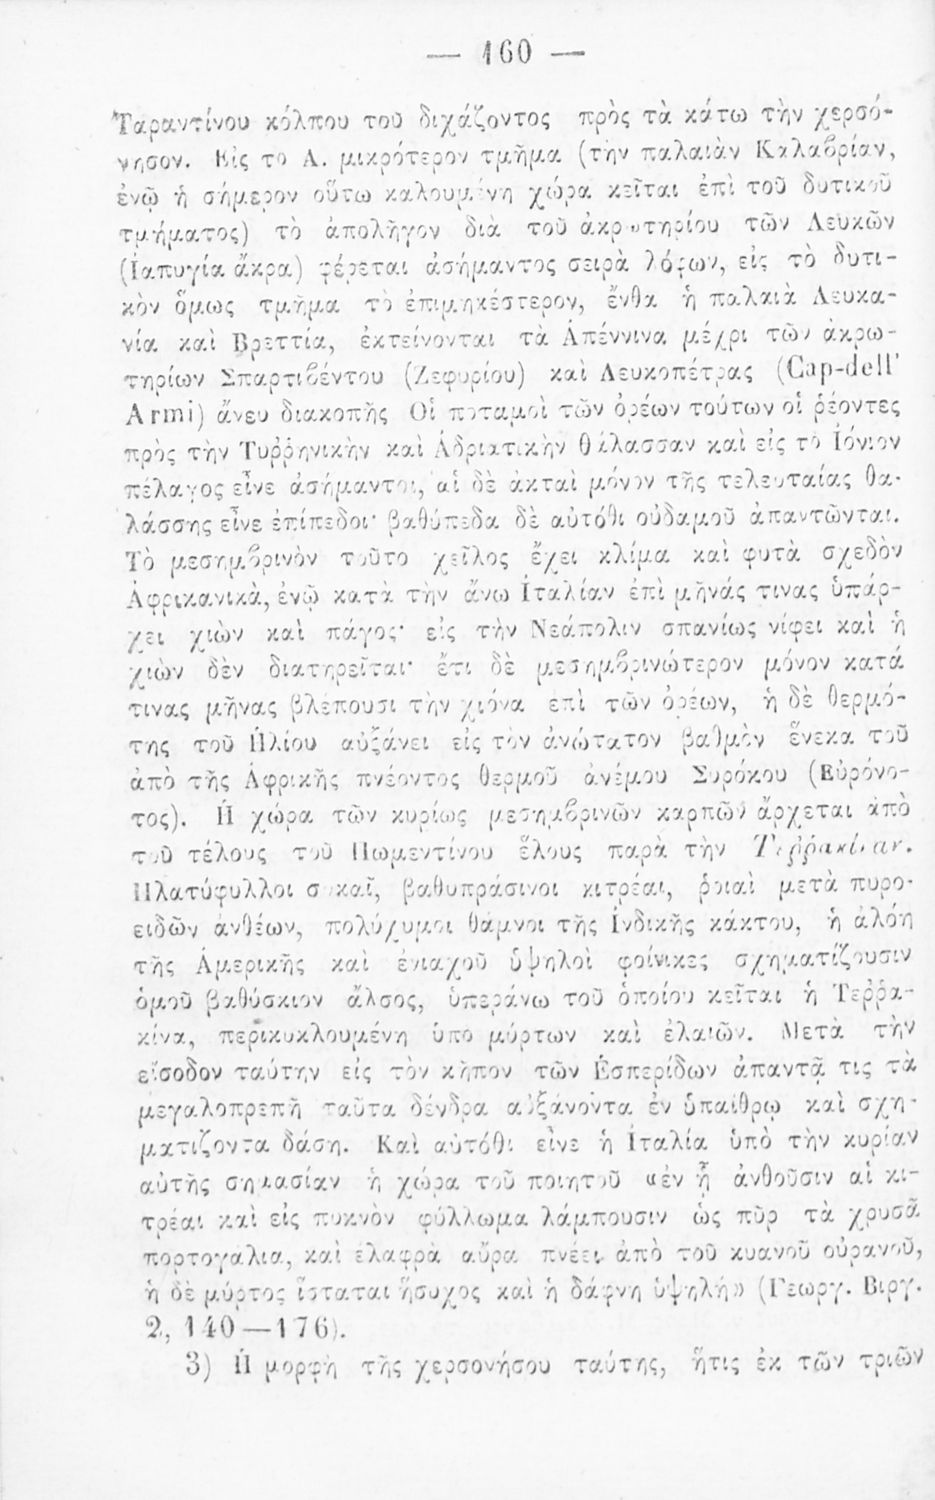 — 160 —
Ταραντίνου κόλπου τοῦ διχάζοντος πρὸς τὰ κάτω τὴν χερσό-
νησον. Εἰς τὸ Α. μικρότερον τμῆμα (τὴν παλαιὰν Καλαβρίαν,
ἐνῷ ἡ σήμερον οὕτω καλουμένη χώρα κεῖται ἐπὶ τοῦ δυτικοῦ
τμήματος) τὸ ἀπολῆγον διὰ τοῦ ἀκρωτηρίου τῶν Λευκῶν
(Ἰαπυγία ἄκρα) φέρεται ἀσήμαντος σειρὰ λόφων, εἰς τὸ δυτι-
κὸν ὅμως τμῆμα τὸ ἐπιμηκέστερον, ἔνθα ἡ παλαιὰ Λευκα-
νία καὶ Βρεττία, ἐκτείνονται τὰ Ἀπέννινα μέχρι τῶν ἀκρω-
τηρίων Σπαρτιβέντου (Ζεφυρίου) καὶ Λευκοπέτρας (Cap-dell'
Armi) ἄνευ διακοπῆς Οἱ ποταμοὶ τῶν ὀρέων τούτων οἱ ῥέοντες
πρὸς τὴν Τυῤῥηνικὴν καὶ Ἀδριατικὴν θάλασσαν καὶ εἰς τὸ Ἰόνιον
πέλαγος εἶνε ἀσήμαντοι, αἱ δὲ ἀκταὶ μόνον τῆς τελευταίας θα-
λάσσης εἶνε ἐπίπεδοι· βαθύπεδα δὲ αὐτόθι οὐδαμοῦ ἀπαντῶνται.
Τὸ μεσημβρινὸν τοῦτο χεῖλος ἔχει κλίμα καὶ φυτὰ σχεδὸν
Ἀφρικανικὰ, ἐνῷ κατὰ τὴν ἄνω Ἰταλίαν ἐπὶ μῆνάς τινας ὑπάρ-
χει χιὼν καὶ πάγος· εἰς τὴν Νεάπολιν σπανίως νίφει καὶ ἡ
χιὼν δὲν διατηρεῖται· ἔτι δὲ μεσημβρινώτερον μόνον κατά
τινας μῆνας βλέπουσι τὴν χιόνα ἐπὶ τῶν ὀρέων, ἡ δὲ θερμό-
της τοῦ Ἡλίου αὐξάνει εἰς τὸν ἀνώτατον βαθμὸν ἕνεκα τοῦ
ἀπὸ τῆς Ἀφρικῆς πνέοντος θερμοῦ ἀνέμου Συρόκου (Εὐρόνο-
τος). Ἡ χώρα τῶν κυρίως μεσημβρινῶν καρπῶν ἄρχεται ἀπὸ
τοῦ τέλους τοῦ Πωμεντίνου ἕλους παρὰ τὴν Τεῤῥακίναν.
Πλατύφυλλοι συκαῖ, βαθυπράσινοι κιτρέαι, ῥοιαὶ μετὰ πυρο-
ειδῶν ἀνθέων, πολύχυμοι θάμνοι τῆς Ἰνδικῆς κάκτου, ἡ ἀλόη
τῆς Ἀμερικῆς καὶ ἐνιαχοῦ ὑψηλοὶ φοίνικες σχηματίζουσιν
ὁμοῦ βαθύσκιον ἄλσος, ὑπεράνω τοῦ ὁποίου κεῖται ἡ Τεῤῥα-
κίνα, περικυκλουμένη ὑπὸ μύρτων καὶ ἐλαιῶν. Μετὰ τὴν
εἴσοδον ταύτην εἰς τὸν κῆπον τῶν Ἑσπερίδων ἀπαντᾷ τις τὰ
μεγαλοπρεπῆ ταῦτα δένδρα αὐξάνοντα ἐν ὑπαίθρῳ καὶ σχη-
ματίζοντα δάση. Καὶ αὐτόθι εἶνε ἡ Ἰταλία ὑπὸ τὴν κυρίαν
αὐτῆς σημασίαν ἡ χώρα τοῦ ποιητοῦ «ἐν ᾗ ἀνθοῦσιν αἱ κι-
τρέαι καὶ εἰς πυκνὸν φύλλωμα λάμπουσιν ὡς πῦρ τὰ χρυσᾶ
πορτογάλια, καὶ ἐλαφρὰ αὔρα πνέει ἀπὸ τοῦ κυανοῦ οὐρανοῦ,
ἡ δὲ μύρτος ἵσταται ἥσυχος καὶ ἡ δάφνη ὑψηλή» (Γεωργ. Βιργ.
2, 140—176).
3) Ἡ μορφὴ τῆς χερσονήσου ταύτης, ἥτις ἐκ τῶν τριῶν